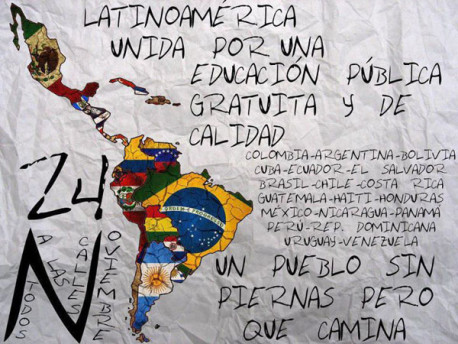 LATINOAMÉRICA
UNIDA POR UNA
EDUCACIÓN PÚBLICA
GRATUITA Y DE
CALIDAD
COLOMBIA-ARGENTINA-BOLIVIA
CUBA-ECUADOR-EL SALVADOR
BRASIL-CHILE-COSTA RICA
GUATEMALA-HAITI-HONDURAS
MÉXICO-NICARAGUA-PANAMÁ
PERÚ-REP. DOMINICANA
URUGUAY-VENEZUELA
24
NOVIEMBRE
TODOS
A LAS
CALLES
UN PUEBLO SIN
PIERNAS PERO
QUE CAMINA